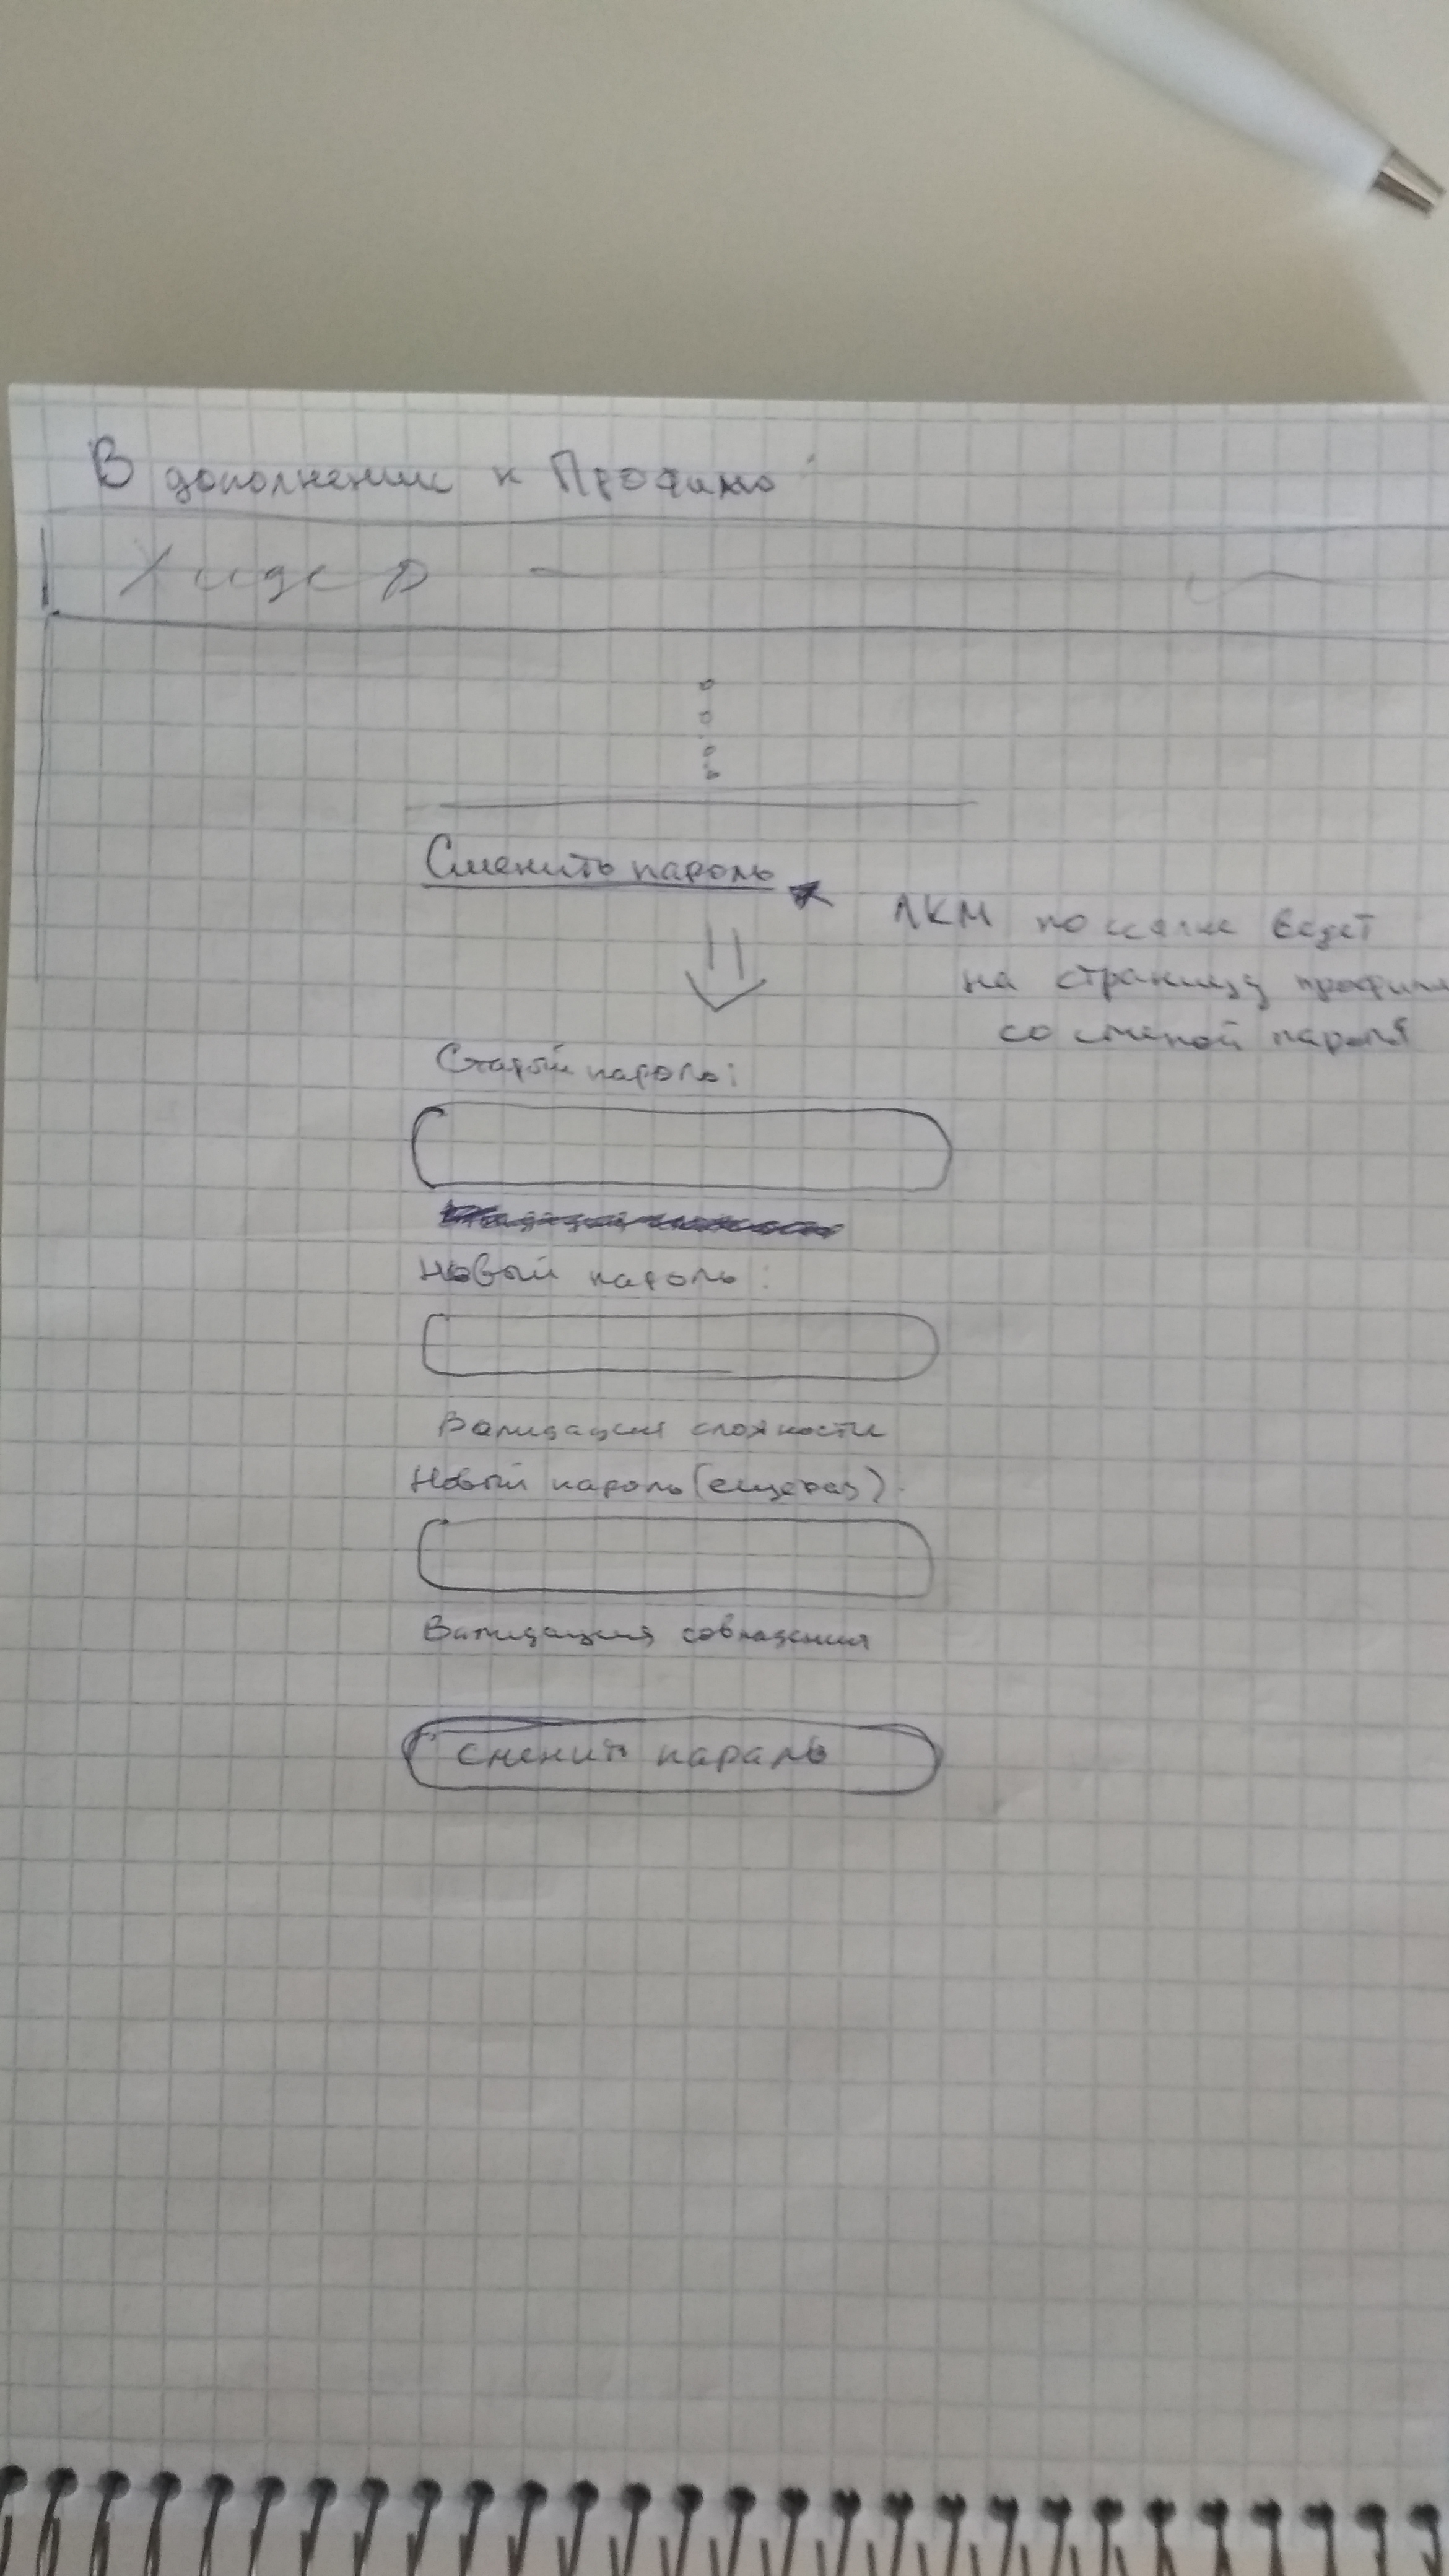 В дополнении к Профилю:
Хидер
Сменить пароль
ЛКМ по ссылке ведет
на страницу профиля
со сменой пароля
Старый пароль:
Новый пароль:
Валидация сложности
Новый пароль (еще раз)
Валидация совпадения
сменить пароль